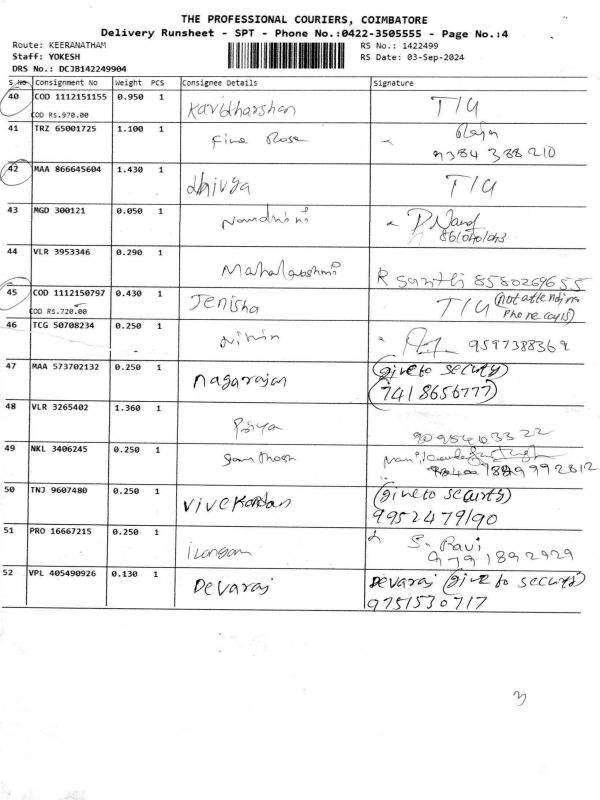 THE PROFESSIONAL COURIERS, COIMBATORE
Delivery Runsheet - SPT - Phone No.:0422-3505555 - Page No.:4
Route: KEERANATHAM RS No.: 1422499
Staff: YOKESH RS Date: 03-Sep-2024
DRS No.: DCJB142249904
S.No Consignment No Weight PCS Consignee Details Signature
40 COD 1112151155 0.950 1 Kavidharshan T/U
COD Rs.970.00
41 TRZ 65001725 1.100 1 Fine Rose Raja
9384388210
42 MAA 866645604 1.430 1 dhivya T/U
43 MGD 300121 0.050 1 Nandhini
44 VLR 3953346 0.290 1 Mahalakshmi R 8580269655
45 COD 1112150797 0.430 1 Jenisha T/U (not attending
COD Rs.720.00 Phone calls)
46 TCG 50708234 0.250 1 9597388369
47 MAA 573702132 0.250 1 nagarajan (give to security)
7418656777
48 VLR 3265402 1.360 1 Priya
49 NKL 3406245 0.250 1 Santhosh
50 TNJ 9607480 0.250 1 Vivekandan (give to security)
9952479190
51 PRO 16667215 0.250 1 S. Ravi
9791892929
52 VPL 405490926 0.130 1 Devaraj Devaraj (give to security)
9751530717
3